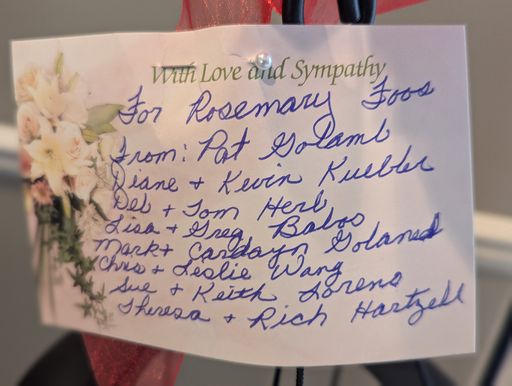 With Love and Sympathy
For Rosemary Foos
From: Pat Golamb
Diane + Kevin Kuebler
Deb + Tom Herl
Lisa + Greg Babos
Mark + Carolayn Golamb
Chris + Leslie Wang
Sue + Keith Lorens
Theresa + Rich Hartzell